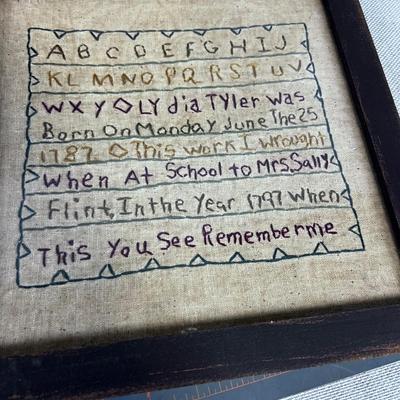 A B C D E F G H I J
K L M N O P Q R S T U V
W X Y ◇ LYdia TYler was
Born On Monday June The 25
1787 ◇ This work I wrought
When At School to Mrs. Sally
Flint, In the Year 1797 When
This You See Remember me